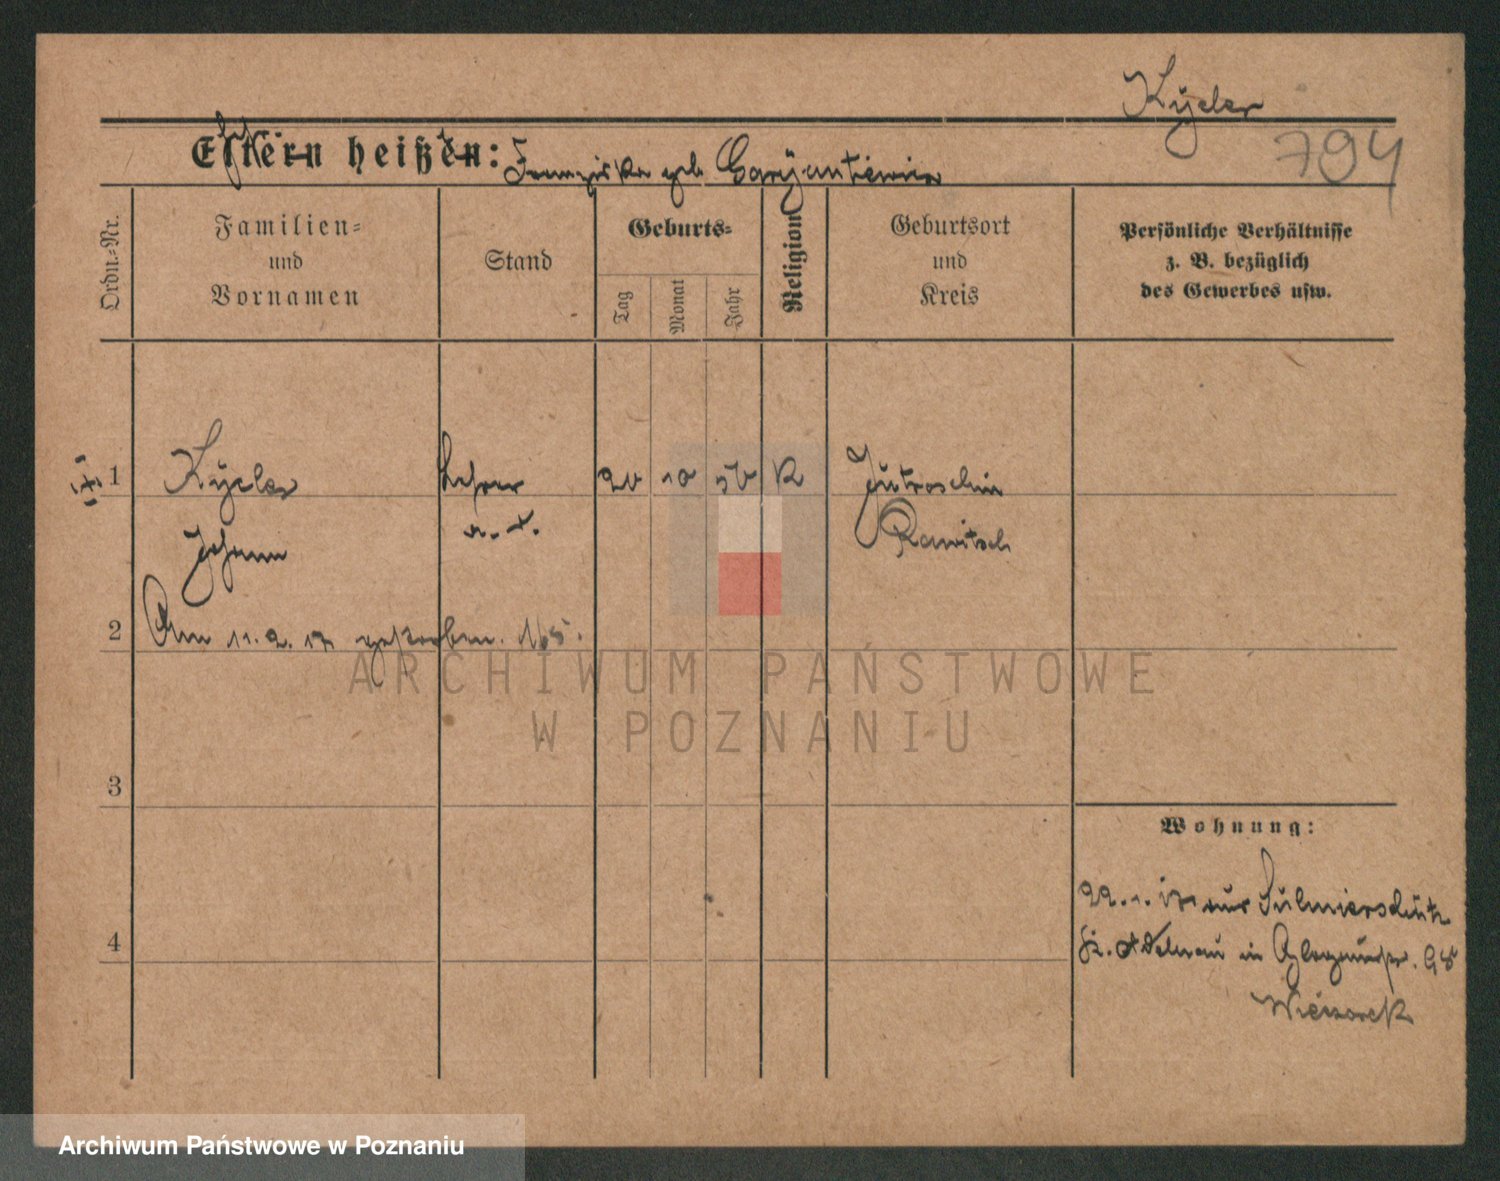 Kycler
794
Eltern heißen: Franziska geb.
Ordn.-Nr.
Familien-
und
Vornamen
Stand
Geburts-
Tag
Monat
Jahr
Religion
Geburtsort
und
Kreis
Persönliche Verhältnisse
z. B. bezüglich
des Gewerbes usw.
1 Kycler Lehrer 20 10 56 K Jutroschin
Johann a. D. Rawitsch
2 Am 11. 2. 17 gestorben.
3
4
Wohnung:
22. 1. 17 aus Sulmierschütz
Kr. Adelnau in
Wieczorek
ARCHIWUM PAŃSTWOWE
W POZNANIU
Archiwum Państwowe w Poznaniu